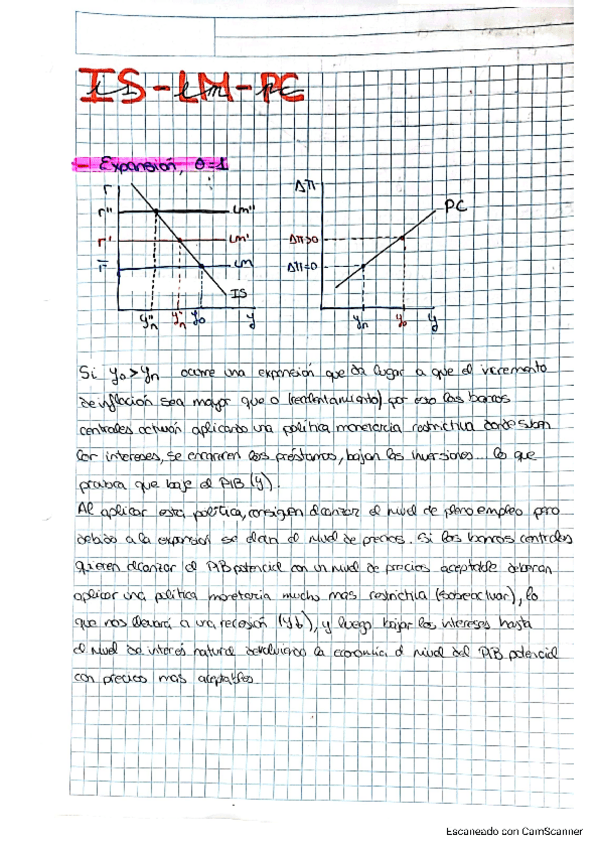 IS-LM-PC
- Expansión, θ=1
r
r''
r'
r̅
LM''
LM'
LM
IS
y''n
y'n
y0
y
Δπ
Δπ>0
Δπ=0
PC
yn
y0
y
Si y0>yn ocurre una expansión que da lugar a que el incremento
de inflación sea mayor que 0 (recalentamiento) por eso los bancos
centrales actúan aplicando una política monetaria restrictiva donde suben
los intereses, se encarecen los préstamos, bajan las inversiones... lo que
provoca que baje el PIB (y).
Al aplicar esta política, consiguen alcanzar el nivel de pleno empleo pero
debido a la expansión se elevan el nivel de precios. Si los bancos centrales
quieren alcanzar el PIB potencial con un nivel de precios aceptable deberán
aplicar una política monetaria mucho más restrictiva (sobreactuar), lo
que nos llevará a una recesión, y luego bajar los intereses hasta
el nivel de interés natural devolviendo la economía al nivel del PIB potencial
con precios más aceptables.
Escaneado con CamScanner